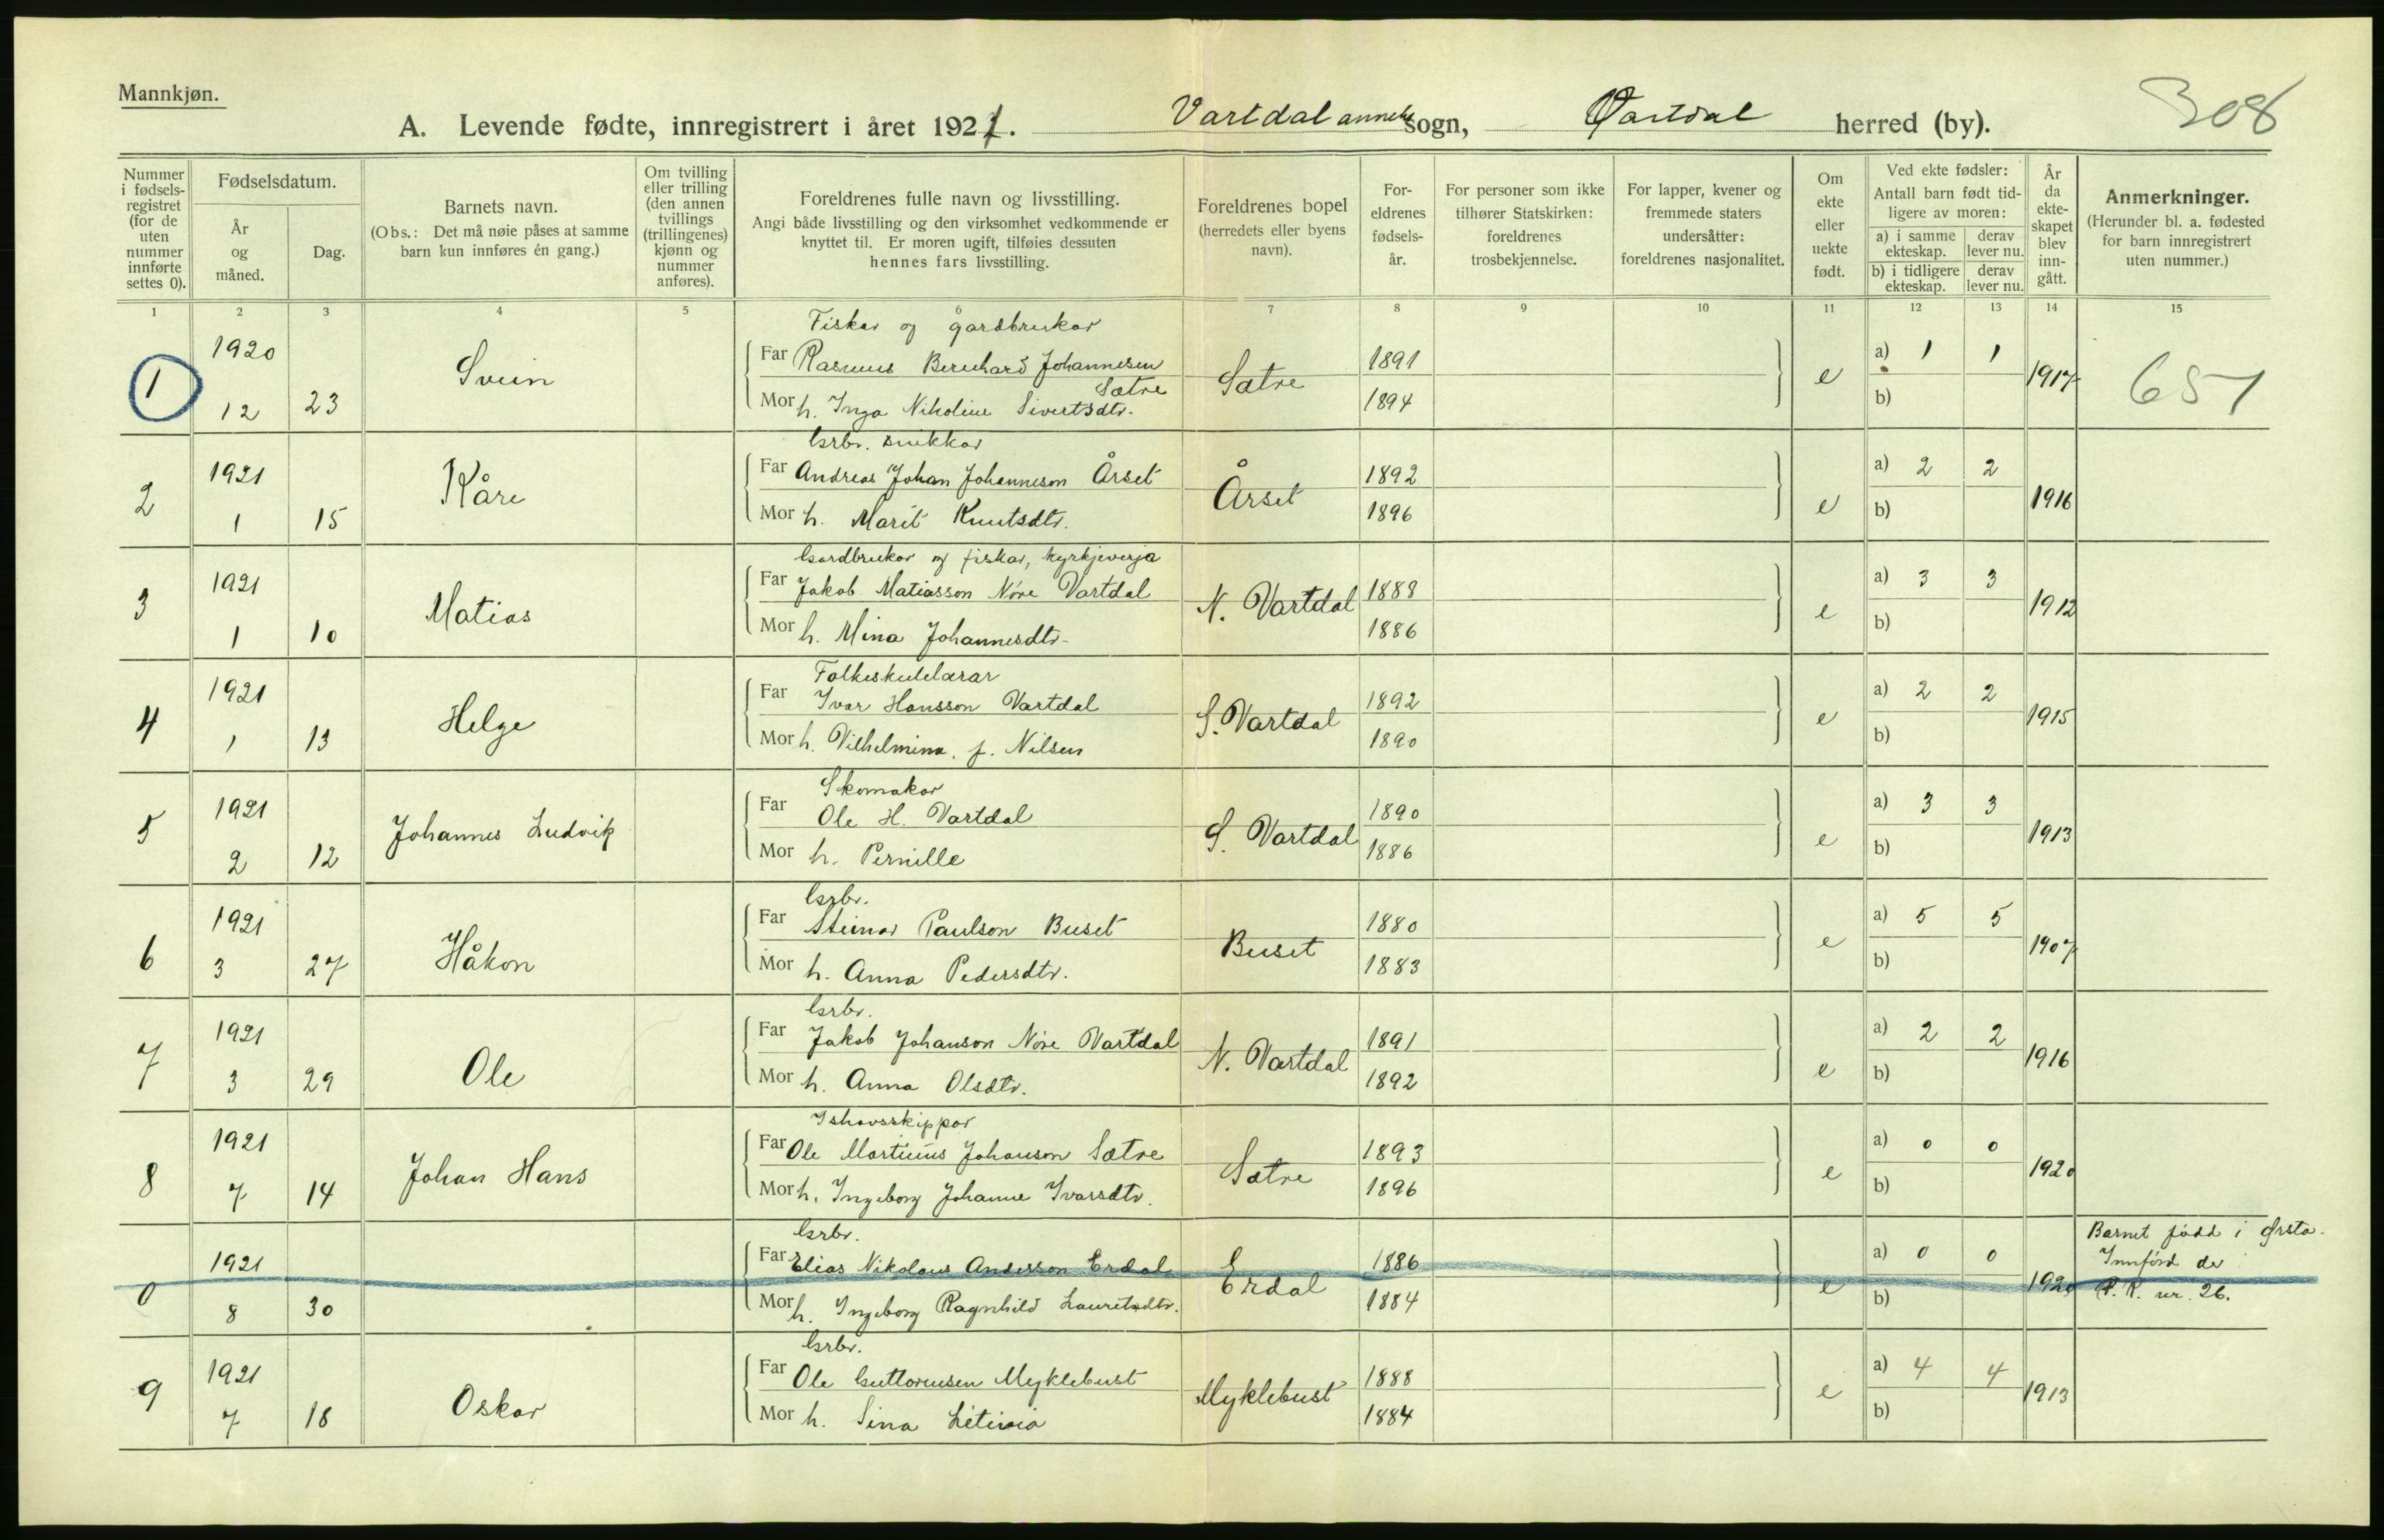 Mannkjøn.
A. Levende fødte, innregistrert i året 1921. Vartdal anneks sogn, Vartdal herred (by).
308
Nummer i fødsels-registret (for de uten nummer innførte settes 0).
Fødselsdatum.
År og måned.
Dag.
Barnets navn.
(Obs.: Det må nøie påses at samme barn kun innføres én gang.)
Om tvilling eller trilling (den annen tvillings (trillingenes) kjønn og nummer anføres).
Foreldrenes fulle navn og livsstilling.
Angi både livsstilling og den virksomhet vedkommende er knyttet til. Er moren ugift, tilføies dessuten hennes fars livsstilling.
Foreldrenes bopel (herredets eller byens navn).
For-eldrenes fødsels-år.
For personer som ikke tilhører Statskirken: foreldrenes trosbekjennelse.
For lapper, kvener og fremmede staters undersåtter: foreldrenes nasjonalitet.
Om ekte eller uekte født.
Ved ekte fødsler: Antall barn født tid-ligere av moren:
a) i samme ekteskap. derav lever nu.
b) i tidligere ekteskap. derav lever nu.
År da ekte-skapet blev inn-gått.
Anmerkninger.
(Herunder bl. a. fødested for barn innregistrert uten nummer.)
1 2 3 4 5 6 7 8 9 10 11 12 13 14 15
Fiskar og gardbrukar
1 1920 12 23 Svein
Far Rasmus Bernhard Johannesen Sætre
Mor h. Inga Nikoline Sivertsdtr.
Sætre 1891 1894 e a) 1 1 b) 1917 651
Grbr. snikkar
2 1921 1 15 Kåre
Far Andreas Johan Johanneson Årset
Mor h. Marit Knutsdtr.
Årset 1892 1896 e a) 2 2 b) 1916
Gardbrukar og fiskar, kyrkjeverja
3 1921 1 10 Matias
Far Jakob Matiasson Nøre Vartdal
Mor h. Mina Johannesdtr.
N. Vartdal 1888 1886 e a) 3 3 b) 1912
Folkeskulelærar
4 1921 1 13 Helge
Far Ivar Hansson Vartdal
Mor h. Vilhelmina, f. Nilsen
S. Vartdal 1892 1890 e a) 2 2 b) 1915
Skomakar
5 1921 2 12 Johannes Ludvik
Far Ole H. Vartdal
Mor h. Pernille
S. Vartdal 1890 1886 e a) 3 3 b) 1913
Grbr.
6 1921 3 27 Håkon
Far Steinar Paulson Buset
Mor h. Anna Pedersdtr.
Buset 1880 1883 e a) 5 5 b) 1907
Grbr.
7 1921 3 29 Ole
Far Jakob Johanson Nøre Vartdal
Mor h. Anna Olsdtr.
N. Vartdal 1891 1892 e a) 2 2 b) 1916
Ishavsskippar
8 1921 7 14 Johan Hans
Far Ole Martinus Johanson Sætre
Mor h. Ingeborg Johanne Ivarsdtr.
Sætre 1893 1896 e a) 0 0 b) 1920
Grbr.
0 1921 8 30
Far Elias Nikolaus Andersson Erdal
Mor h. Ingeborg Ragnhild Lauritsdtr.
Erdal 1886 1884 e a) 0 0 b) 1920
Barnet fødd i Ørsta.
Innførd der
P. R. nr. 26.
Grbr.
9 1921 7 18 Oskar
Far Ole Guttormsen Myklebust
Mor h. Sina Letisia
Myklebust 1888 1884 e a) 4 4 b) 1913